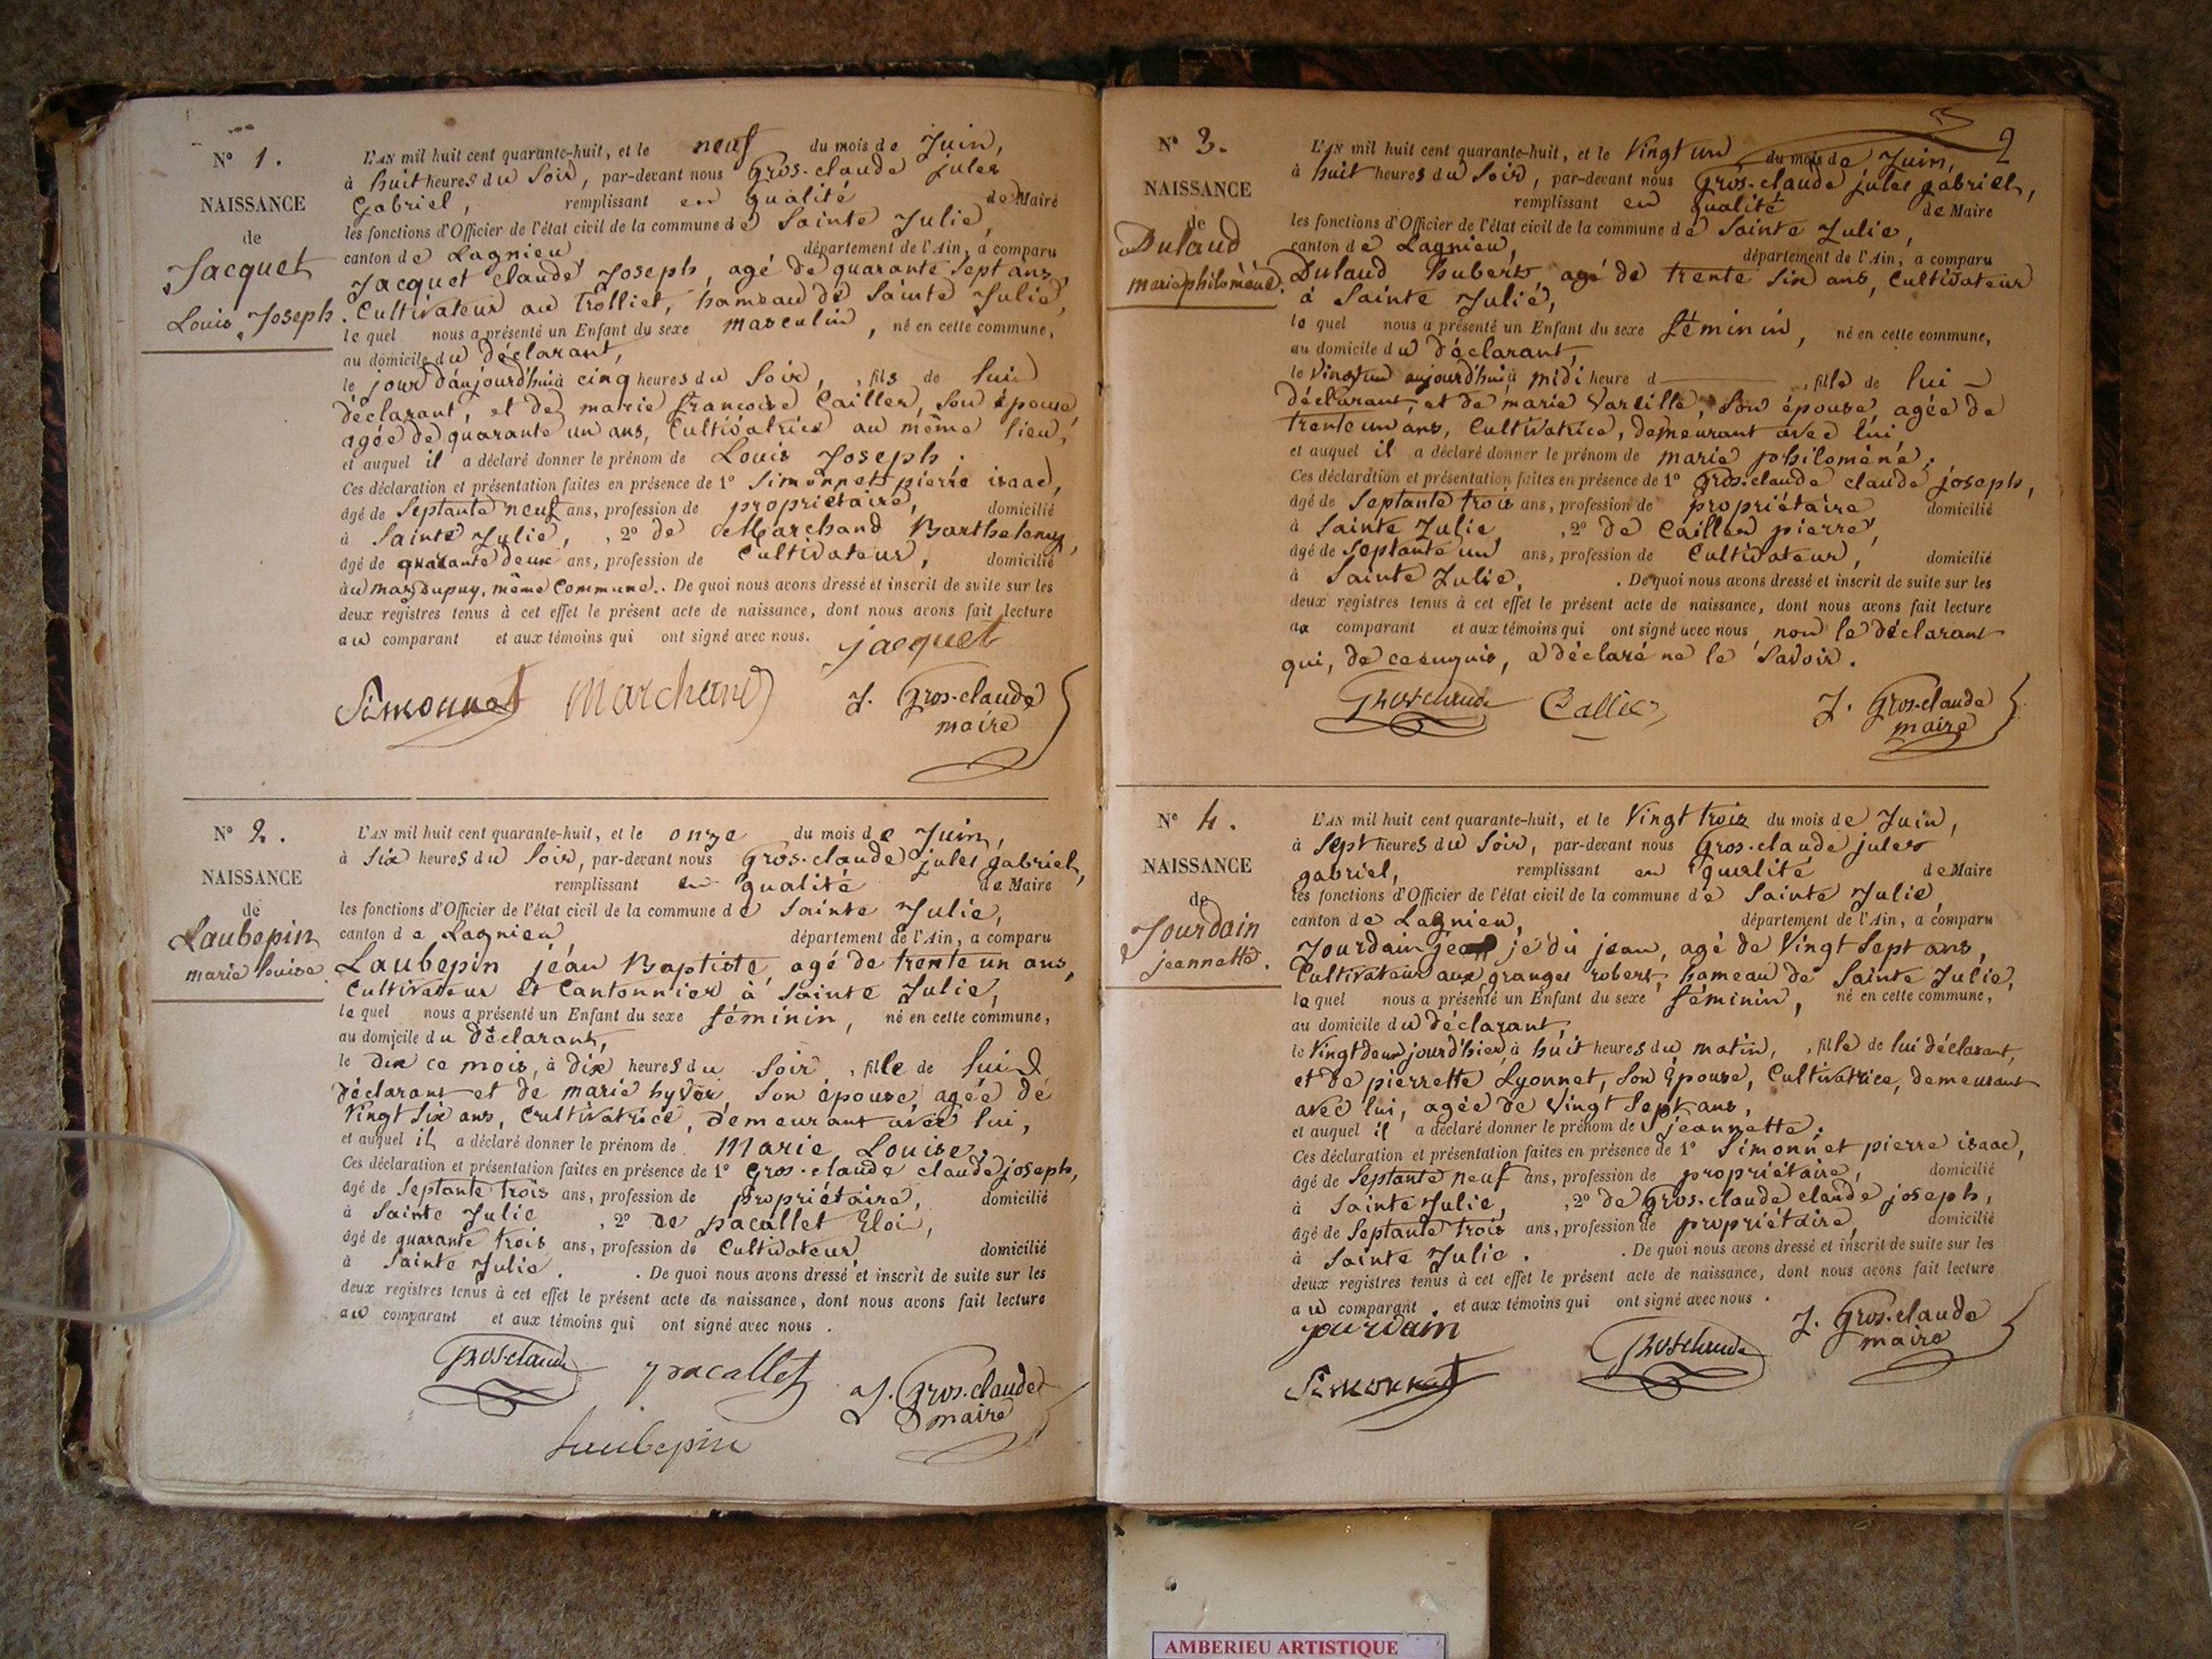 N° 1.
NAISSANCE
de
Jacquet
Louis Joseph.
L'AN mil huit cent quarante-huit, et le neuf du mois de Juin,
à huit heures du Soir, par-devant nous Gros-claude jules
Gabriel, remplissant en qualité de Maire
les fonctions d'Officier de l'état civil de la commune de Sainte Julie,
canton de Lagnieu, département de l'Ain, a comparu
Jacquet Claude Joseph, agé de quarante Sept ans,
Cultivateur au Trolliet, hameau de Sainte Julie,
le quel nous a présenté un Enfant du sexe masculin, né en cette commune,
au domicile du déclarant,
le jour d'aujourd'hui à cinq heures du Soir, fils de lui
déclarant, et de marie francoise Cailler, Son épouse,
agée de quarante un ans, Cultivatrice au même lieu,
et auquel il a déclaré donner le prénom de Louis Joseph.
Ces déclaration et présentation faites en présence de 1° Simonnet pierre isaac,
âgé de Septante neuf ans, profession de propriétaire, domicilié
à Sainte Julie, , 2° de Marchand Barthelemy,
âgé de quarante deux ans, profession de Cultivateur, domicilié
au mas dupuy, même Commune.. De quoi nous avons dressé et inscrit de suite sur les
deux registres tenus à cet effet le présent acte de naissance, dont nous avons fait lecture
au comparant et aux témoins qui ont signé avec nous. jacquet
Simonnet Marchand J. Gros-claude
maire
N° 2.
NAISSANCE
de
Laubepin
marie louise
L'AN mil huit cent quarante-huit, et le onze du mois de Juin,
à Six heures du Soir, par-devant nous Gros-claude jules gabriel,
remplissant en qualité de Maire
les fonctions d'Officier de l'état civil de la commune de Sainte Julie,
canton de Lagnieu département de l'Ain, a comparu
Laubepin jean Baptiste, agé de trente un ans,
Cultivateur et Cantonnier à Sainte Julie,
le quel nous a présenté un Enfant du sexe féminin, né en cette commune,
au domicile du déclarant,
le dix ce mois, à dix heures du Soir, fille de lui
déclarant et de marie hyver, Son épouse, agée de
Vingt Six ans, Cultivatrice, demeurant avec lui,
et auquel il a déclaré donner le prénom de Marie Louise.
Ces déclaration et présentation faites en présence de 1° Gros-claude claude joseph,
âgé de Septante trois ans, profession de propriétaire, domicilié
à Sainte Julie , 2° de pacallet Eloi,
âgé de quarante trois ans, profession de Cultivateur, domicilié
à Sainte Julie. . De quoi nous avons dressé et inscrit de suite sur les
deux registres tenus à cet effet le présent acte de naissance, dont nous avons fait lecture
au comparant et aux témoins qui ont signé avec nous.
Grosclaude pacallet J. Gros-claude
maire
Laubepin
2
N° 3.
NAISSANCE
de
Dulaud
marie philomène.
L'AN mil huit cent quarante-huit, et le Vingt un du mois de Juin,
à huit heures du Soir, par-devant nous Gros-claude jules gabriel,
remplissant en qualité de Maire
les fonctions d'Officier de l'état civil de la commune de Sainte Julie,
canton de Lagnieu, département de l'Ain, a comparu
Dulaud hubert agé de trente Six ans, Cultivateur
à Sainte Julie,
le quel nous a présenté un Enfant du sexe féminin, né en cette commune,
au domicile du déclarant,
le Vingt un aujourd'hui, à midi heure d , fille de lui
déclarant, et de marie Vareille, Son épouse, agée de
trente un ans, Cultivatrice, demeurant avec lui,
et auquel il a déclaré donner le prénom de marie philomène.
Ces déclaration et présentation faites en présence de 1° Gros-claude claude joseph,
âgé de Septante trois ans, profession de propriétaire domicilié
à Sainte Julie , 2° de Cailler pierre,
âgé de Septante un ans, profession de Cultivateur, domicilié
à Sainte Julie, . De quoi nous avons dressé et inscrit de suite sur les
deux registres tenus à cet effet le présent acte de naissance, dont nous avons fait lecture
au comparant et aux témoins qui ont signé avec nous, non le déclarant
qui, de ce enquis, a déclaré ne le Savoir.
Grosclaude J. Gros-claude
maire
N° 4.
NAISSANCE
de
Jourdain
jeannette.
L'AN mil huit cent quarante-huit, et le Vingt trois du mois de Juin,
à Sept heures du Soir, par-devant nous Gros-claude jules
gabriel, remplissant en qualité de Maire
les fonctions d'Officier de l'état civil de la commune de Sainte Julie,
canton de Lagnieu, département de l'Ain, a comparu
Jourdain jean, agé de Vingt Sept ans,
Cultivateur aux granges robert, hameau de Sainte Julie,
le quel nous a présenté un Enfant du sexe féminin, né en cette commune,
au domicile du déclarant,
le Vingt deux jour d'hier, à huit heures du matin, , fille de lui déclarant,
et de pierrette Lyonnet, Son Epouse, Cultivatrice, demeurant
avec lui, agée de Vingt Sept ans,
et auquel il a déclaré donner le prénom de jeannette.
Ces déclaration et présentation faites en présence de 1° Simonnet pierre isaac,
âgé de Septante neuf ans, profession de propriétaire, domicilié
à Sainte Julie, , 2° de Gros-claude claude joseph,
âgé de Septante trois ans, profession de propriétaire, domicilié
à Sainte Julie. . De quoi nous avons dressé et inscrit de suite sur les
deux registres tenus à cet effet le présent acte de naissance, dont nous avons fait lecture
au comparant. et aux témoins qui ont signé avec nous.
jourdain J. Gros-claude
maire
Simonnet Grosclaude
AMBERIEU ARTISTIQUE